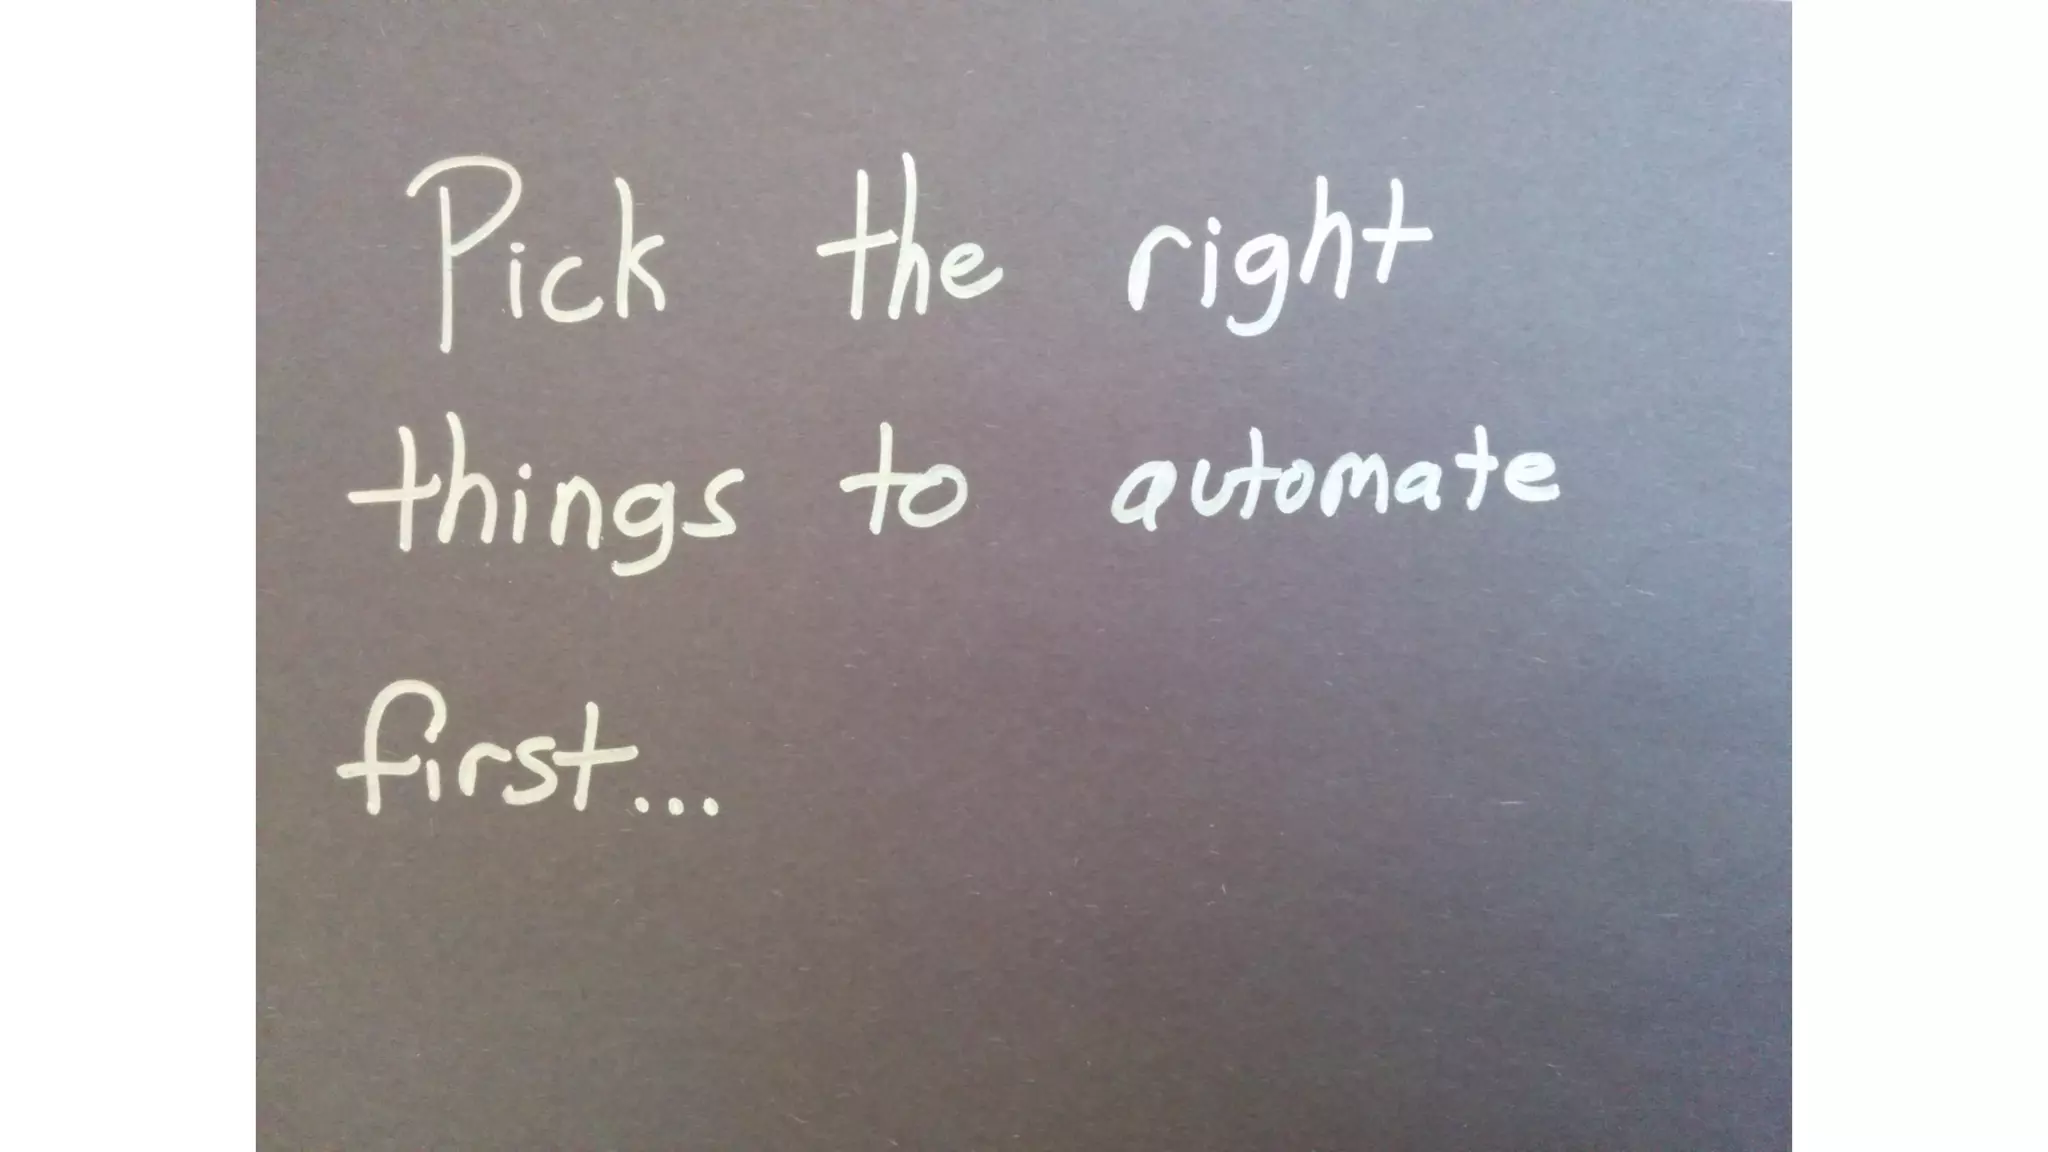 Pick the right
things to automate
first...